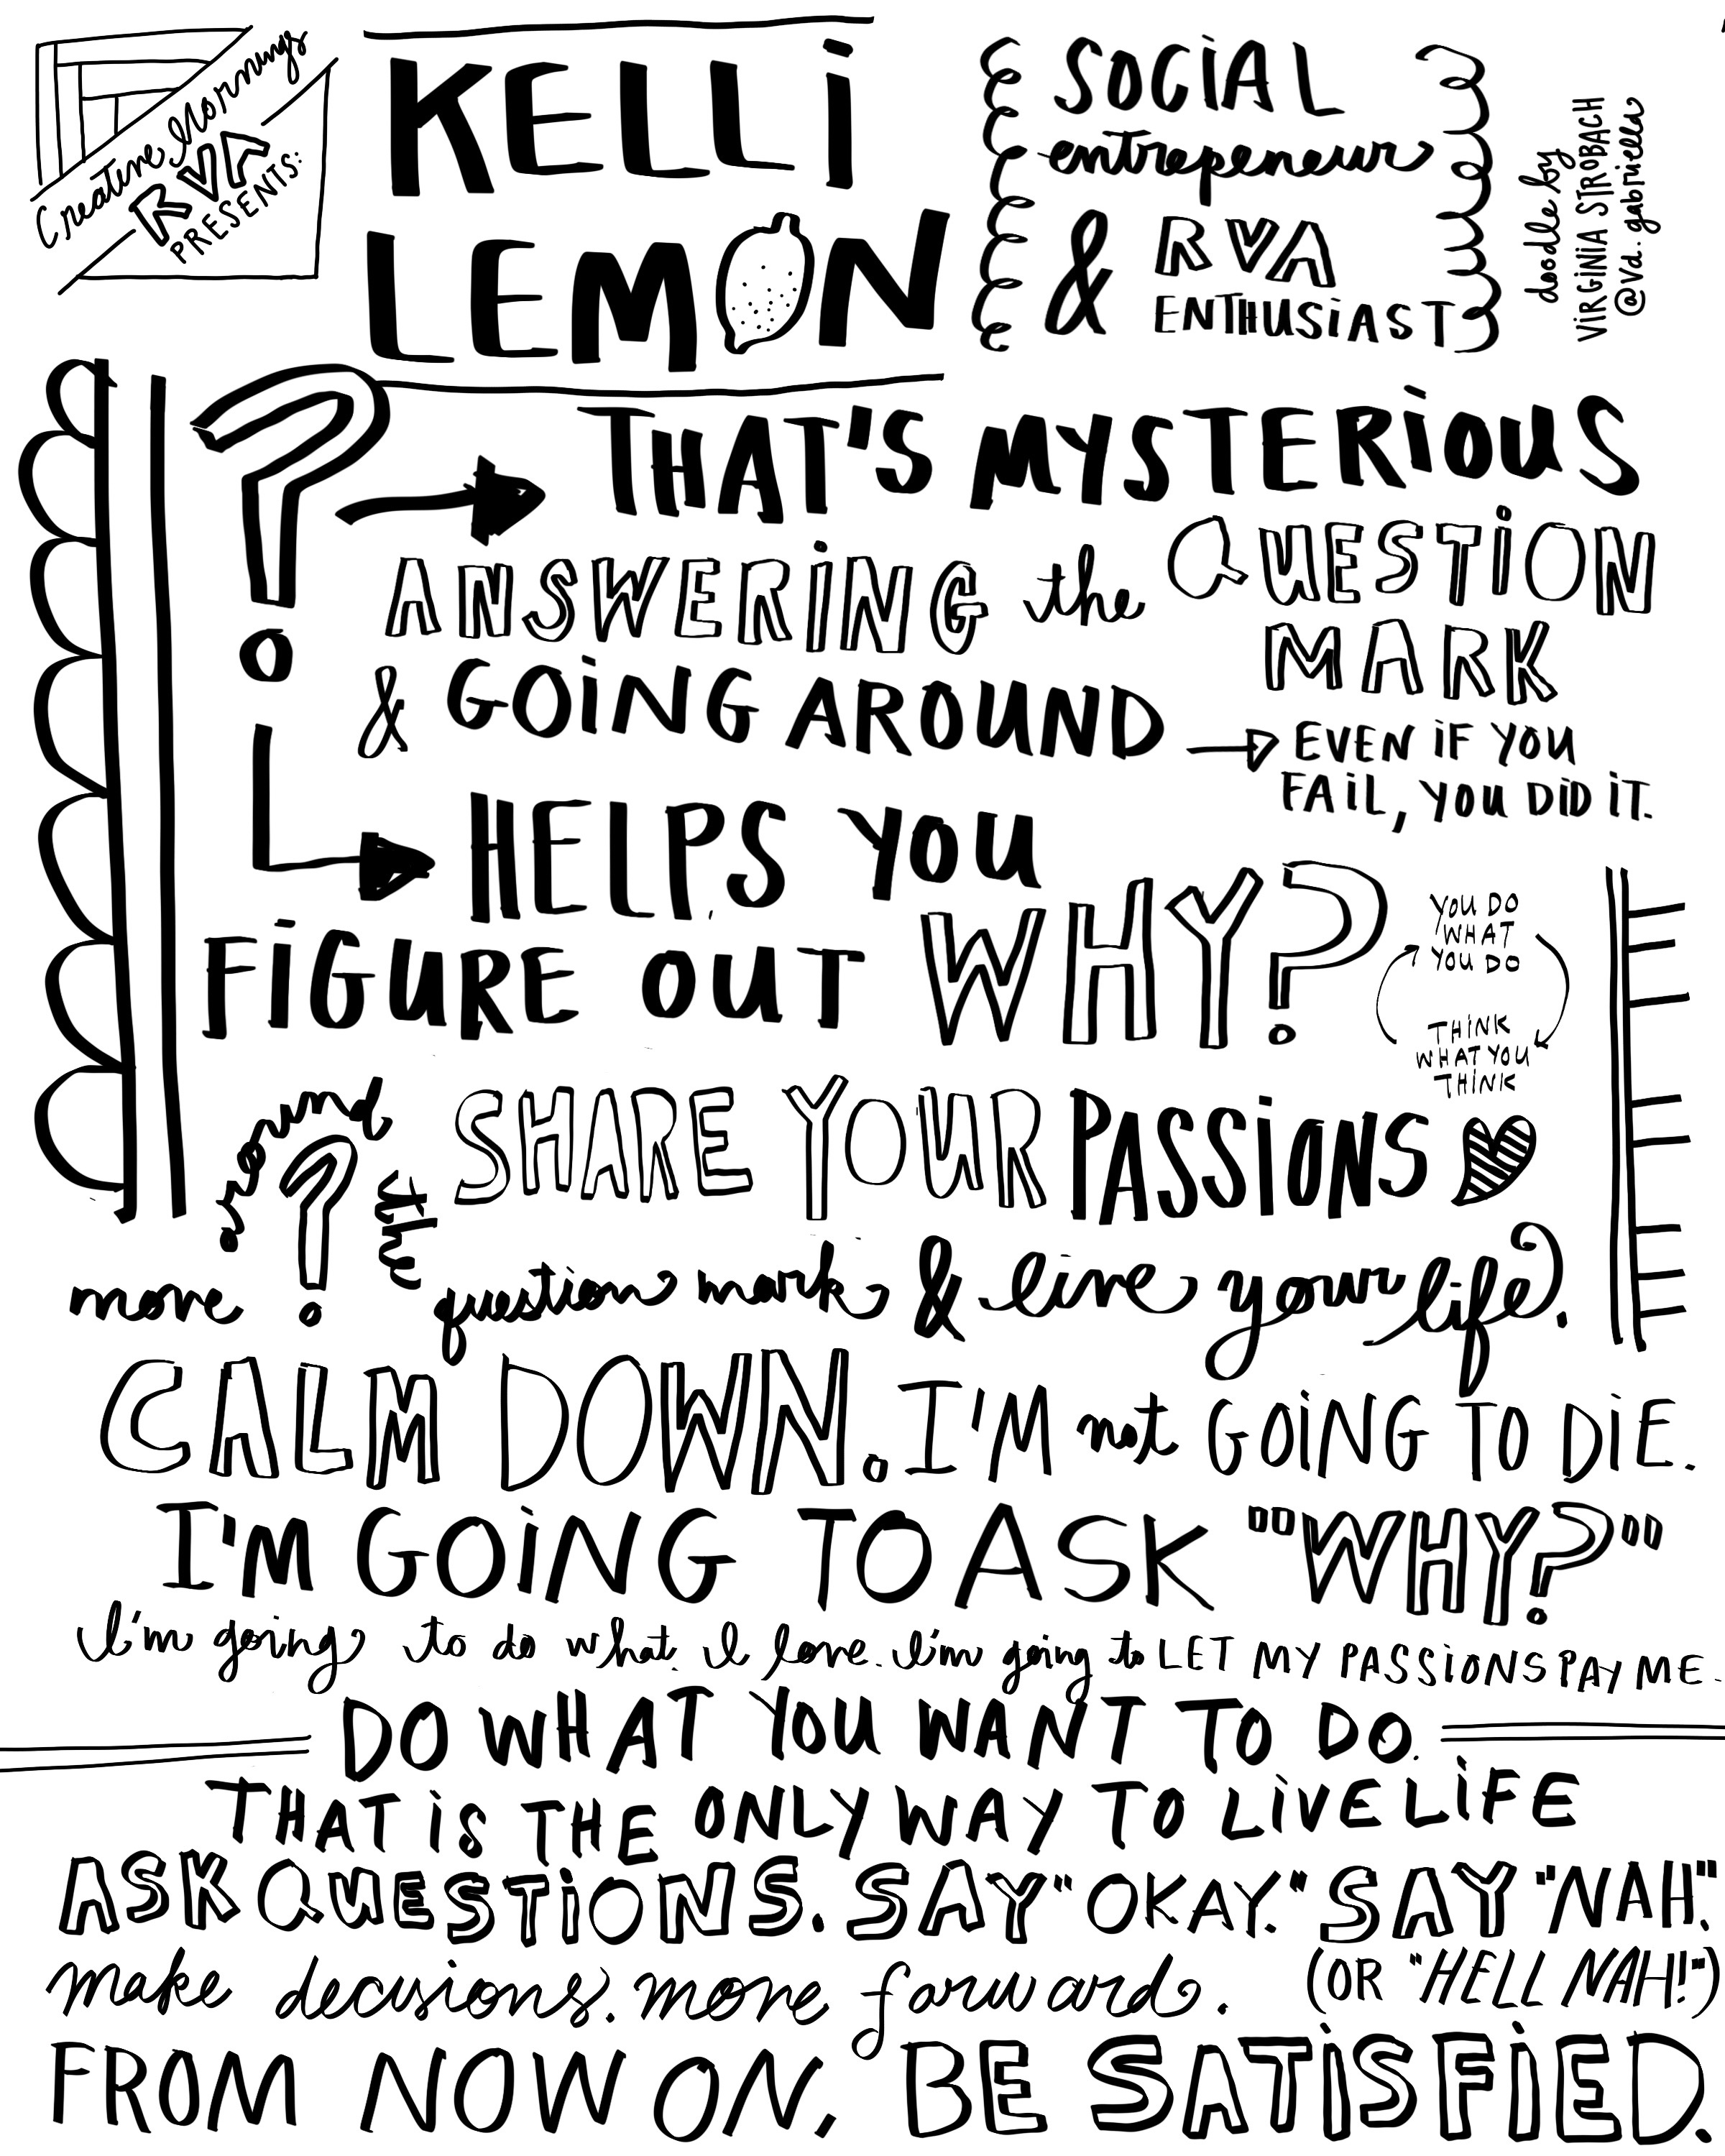 Creative Mornings
RVA
PRESENTS:
KELLI
LEMON
SOCIAL
entrepeneur
& RVA
ENTHUSIAST
doodle by
VIRGINIA STROBACH
@va.gabriella
? THAT'S MYSTERIOUS
ANSWERING the QUESTION
MARK
& GOING AROUND
EVEN IF YOU
FAIL, YOU DID IT.
HELPS YOU
FIGURE OUT WHY?
YOU DO
WHAT
YOU DO
THINK
WHAT YOU
THINK
SHARE YOUR PASSIONS
move around ? the question mark & live your life.
CALM DOWN. I'M not GOING TO DIE.
I'M GOING TO ASK "WHY?"
I'm going to do what I love. I'm going to LET MY PASSIONS PAY ME.
DO WHAT YOU WANT TO DO.
THAT IS THE ONLY WAY TO LIVE LIFE
ASK QUESTIONS. SAY "OKAY." SAY "NAH."
make decisions. move forward. (OR "HELL NAH!")
FROM NOW ON, BE SATISFIED.